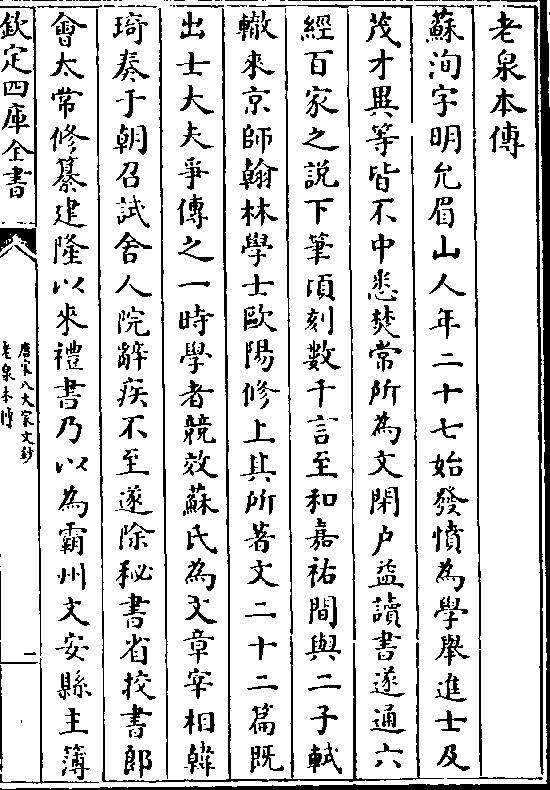 老泉本傳
蘇洵字明允眉山人年二十七始發憤為學舉進士及
茂才異等皆不中悉焚常所為文閉户益讀書遂通六
經百家之説下筆頃刻數千言至和嘉祐間與二子軾
轍來京師翰林學士歐陽修上其所著文二十二篇既
出士大夫爭傳之一時學者競效蘇氏為文章宰相韓
琦奏于朝召試舍人院辭疾不至遂除秘書省挍書郎
會太常修纂建隆以來禮書乃以為霸州文安縣主簿
欽定四庫全書
唐宋八大家文鈔
老泉本傳
一